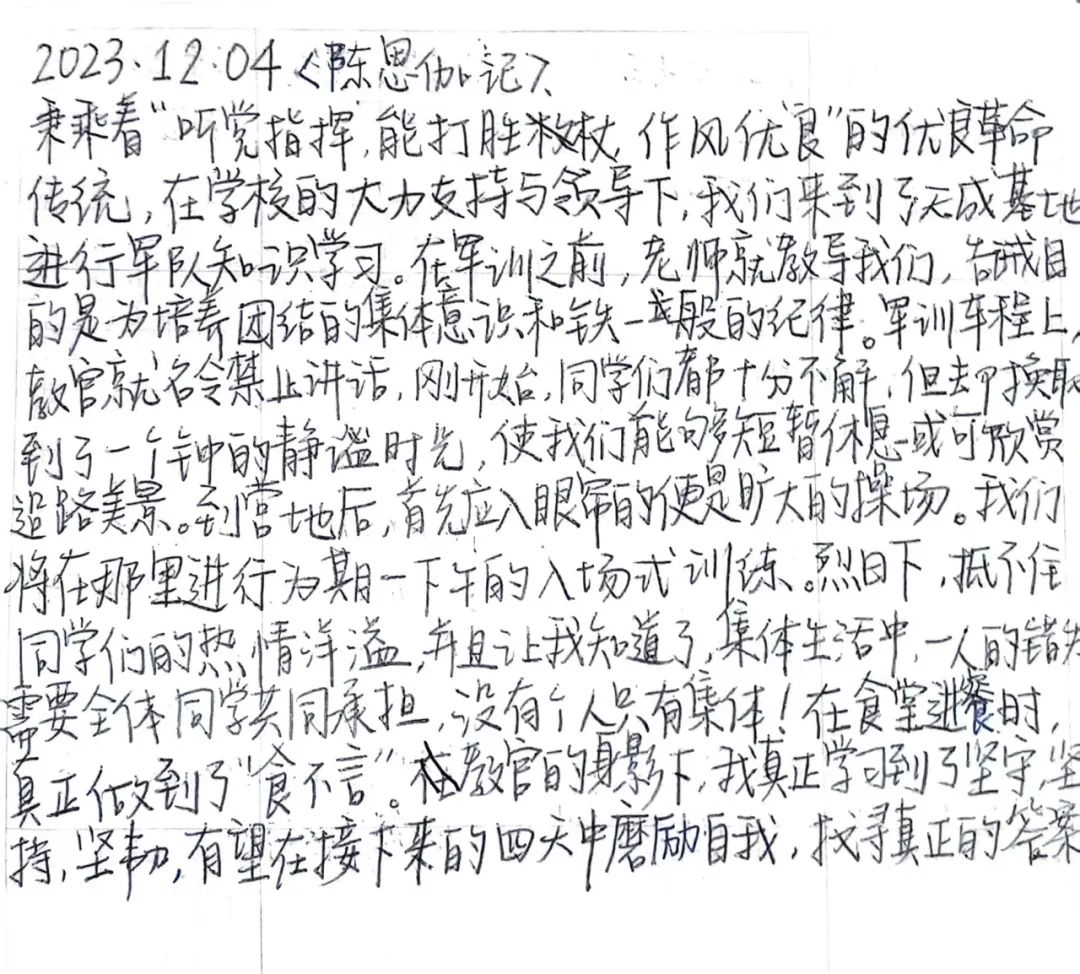 2023.12.04《陈思伽记》
秉乘着“听党指挥,能打胜杖,作风优良”的优良革命
传统,在学校的大力支持与领导下,我们来到了天成基地
进行军队知识学习。在军训之前,老师就教导我们,告戒目
的是为培养团结的集体意识和铁一般的纪律。军训车程上,
教官就名令禁止讲话,刚开始,同学们都十分不解,但却换取
到了一个钟的静谧时光,使我们能够短暂休息或可欣赏
沿路美景。到营地后,首先应入眼帘的便是旷大的操场。我们
将在那里进行为期一下午的入场式训练。烈日下,抵不住
同学们的热情洋溢,并且让我知道了,集体生活中,一人的错
需要全体同学共同承担,没有个人只有集体!在食堂进餐时,
真正做到了“食不言”。在教官的身影下,我真正学习到了坚守,坚
持,坚韧,有望在接下来的四天中磨励自我,找寻真正的答案